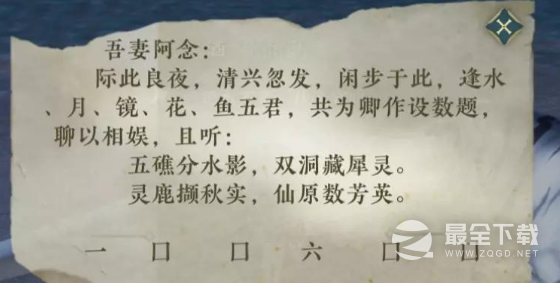 吾妻阿念：
际此良夜，清兴忽发，闲步于此，逢水
、月、镜、花、鱼五君，共为卿作设数题，
聊以相娱，且听：
五礁分水影，双洞藏犀灵。
灵鹿撷秋实，仙原数芳英。
一 口 口 六 口 口
最全下载
WWW.ZQGD.NET